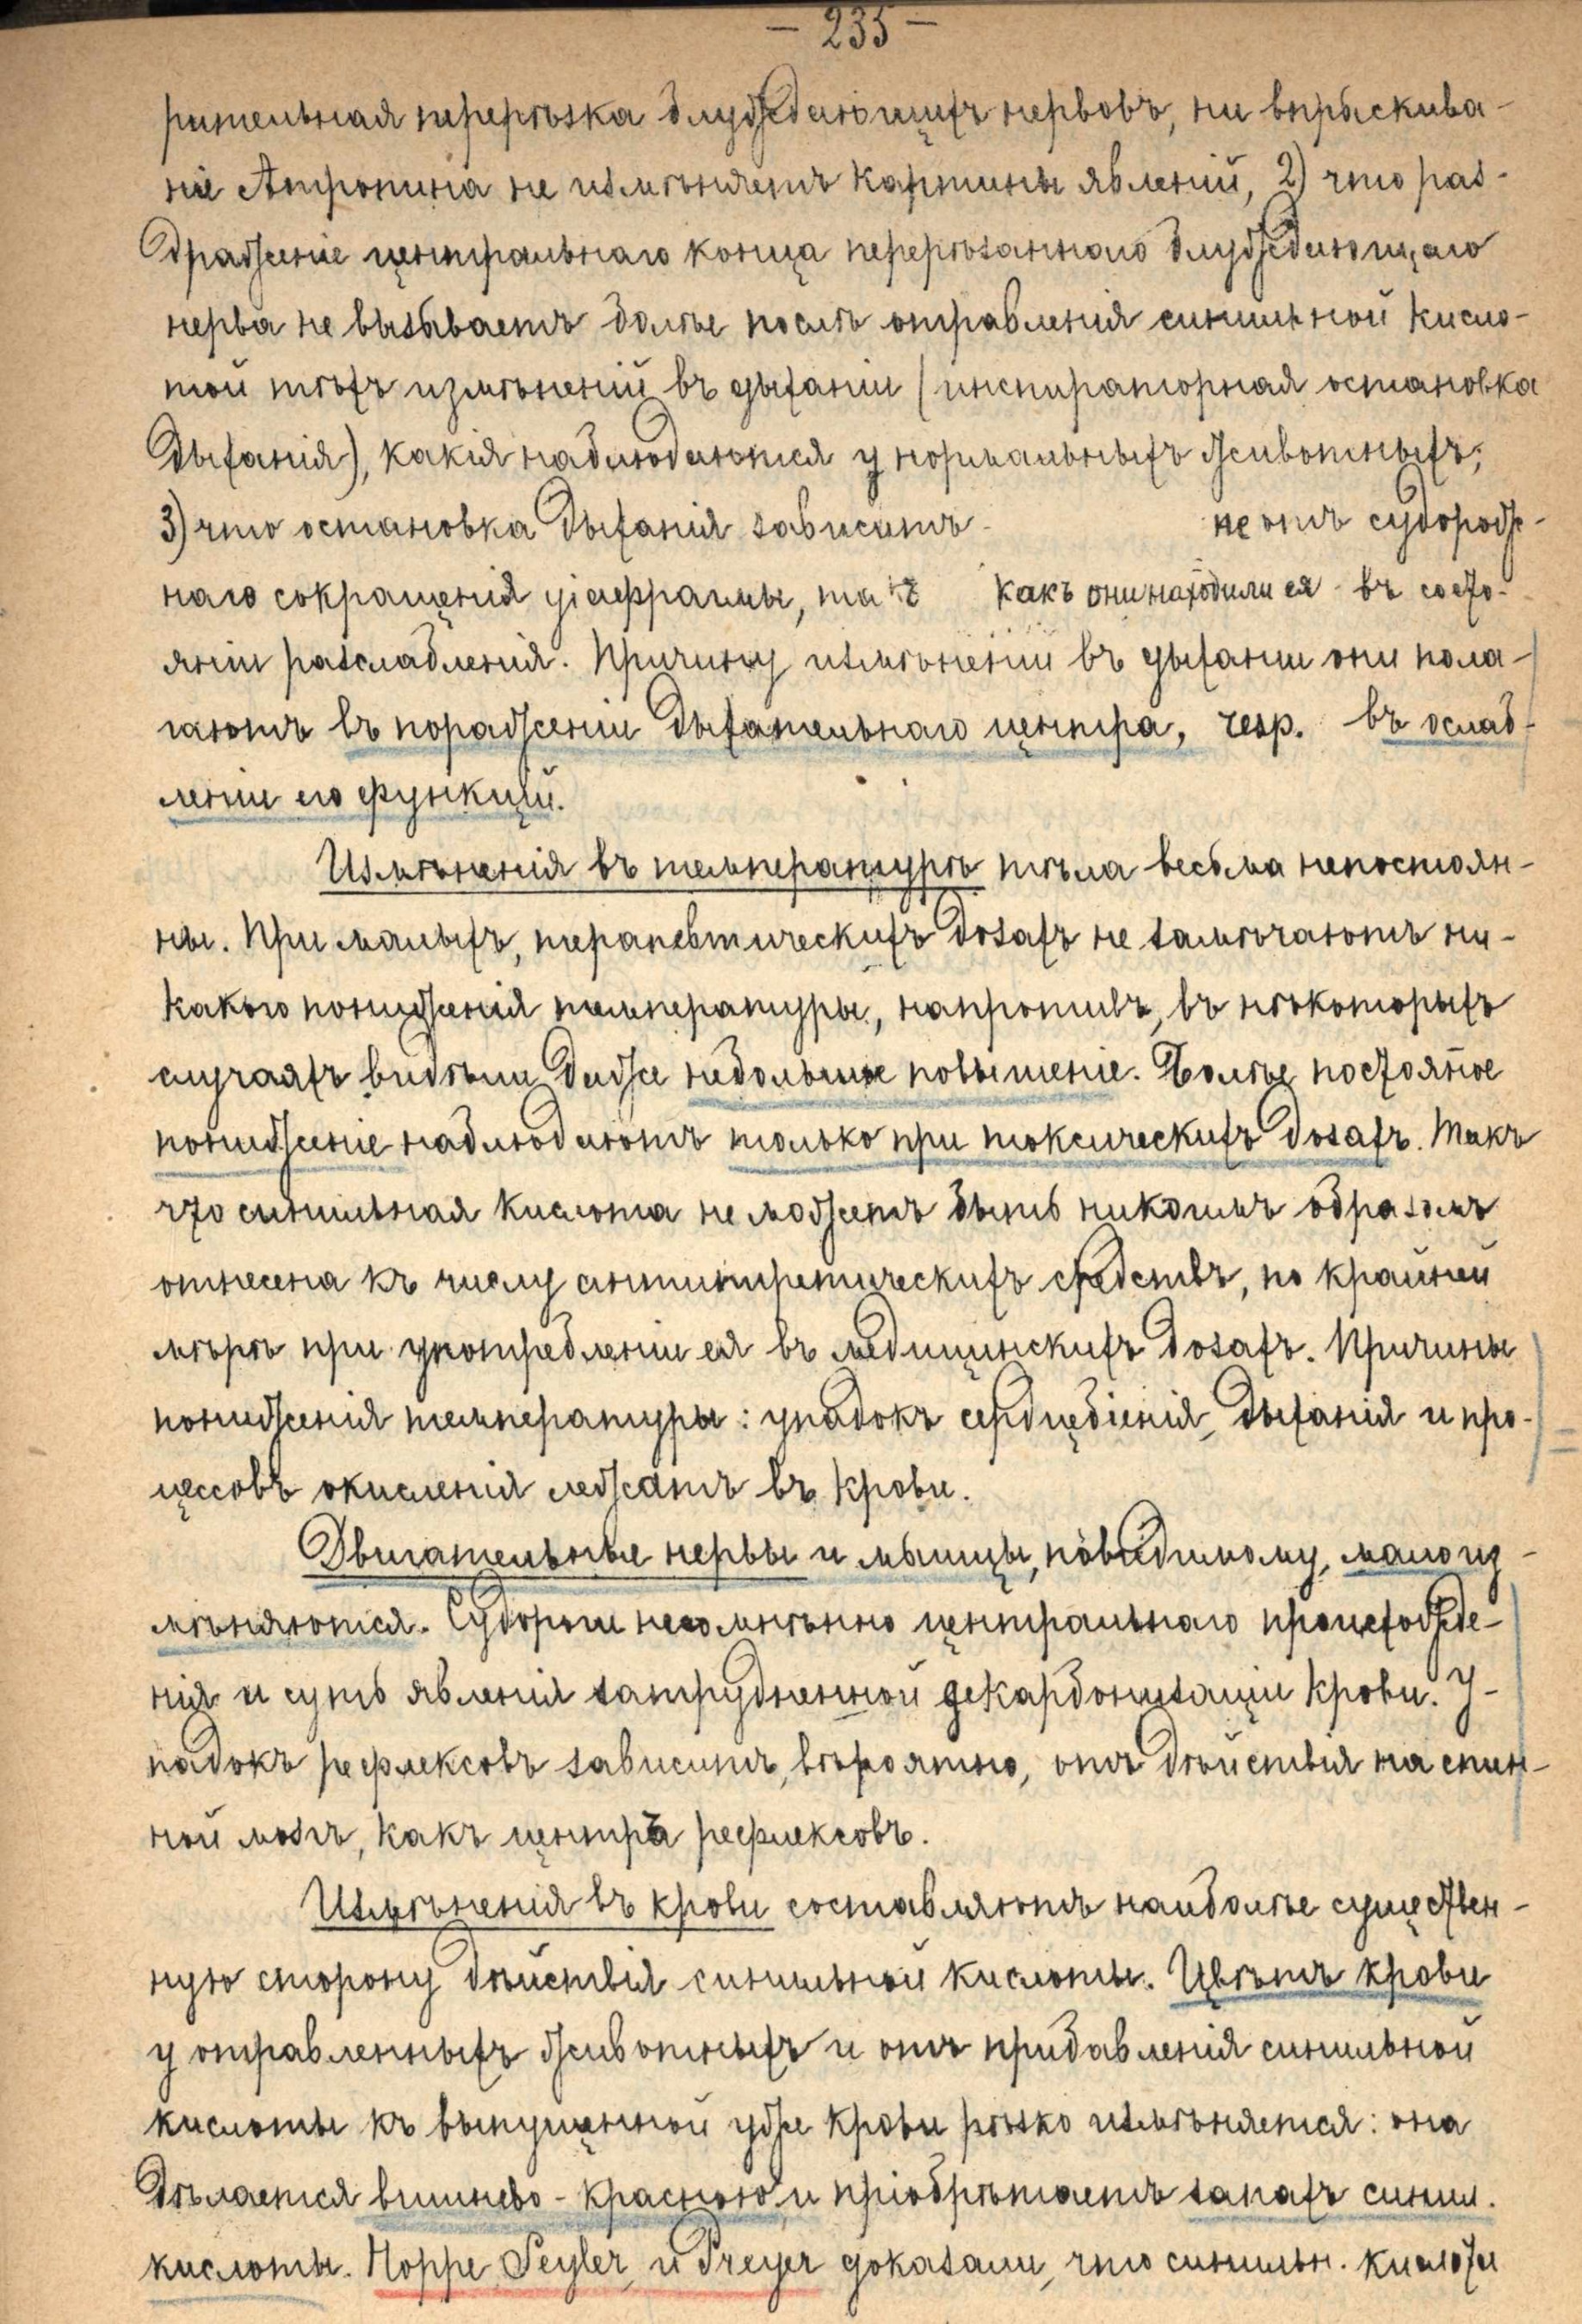 — 235 —
рительная перерѣзка блуждающихъ нервовъ, ни впрыскива-
ніе Атропина не измѣняетъ картины явленій, 2) что раз-
драженіе центральнаго конца перерѣзаннаго блуждающаго
нерва не вызываетъ болѣе послѣ отравленія синильной кисло-
той тѣхъ измѣненій въ дыханіи (инспираторная остановка
дыханія), какія наблюдаются у нормальныхъ животныхъ;
3) что остановка дыханія зависитъ не отъ судорож-
наго сокращенія діафрагмы, такъ какъ они находились въ состо-
яніи разслабленія. Причину измѣненій въ дыханіи они пола-
гаютъ въ пораженіи дыхательнаго центра, resp. въ ослаб-
леніи его функцій.
Измѣненія въ температурѣ тѣла весьма непостоян-
ны. При малыхъ, терапевтическихъ дозахъ не замѣчаютъ ни-
какого пониженія температуры, напротивъ, въ нѣкоторыхъ
случаяхъ видѣли даже небольшое повышеніе. Болѣе постоян̄ое
пониженіе наблюдаютъ только при токсическихъ дозахъ. Такъ
что синильная кислота не можетъ быть никоимъ образомъ
отнесена къ числу антипиретическихъ средствъ, по крайней
мѣрѣ при употребленіи ея въ медицинскихъ дозахъ. Причины
пониженія температуры: упадокъ сердцебіенія, дыханія и про-
цессовъ окисленія лежатъ въ крови.
Двигательные нервы и мышцы, повидимому, мало из-
мѣняются. Судороги несомнѣнно центральнаго происхожде-
нія и суть явленія затрудненной декарбонизаціи крови. У-
падокъ рефлексовъ зависитъ, вѣроятно, отъ дѣйствія на спин-
ной мозгъ, какъ центръ рефлексовъ.
Измѣненія въ крови составляютъ наиболѣе существен-
ную сторону дѣйствія синильной кислоты. Цвѣтъ крови
у отравленныхъ животныхъ и отъ прибавленія синильной
кислоты къ выпущенной уже крови рѣзко измѣняется: она
дѣлается вишнево-красною и пріобрѣтаетъ запахъ синил.
кислоты. Hoppe Seyler, и Preyer доказали, что синильн. кислоты